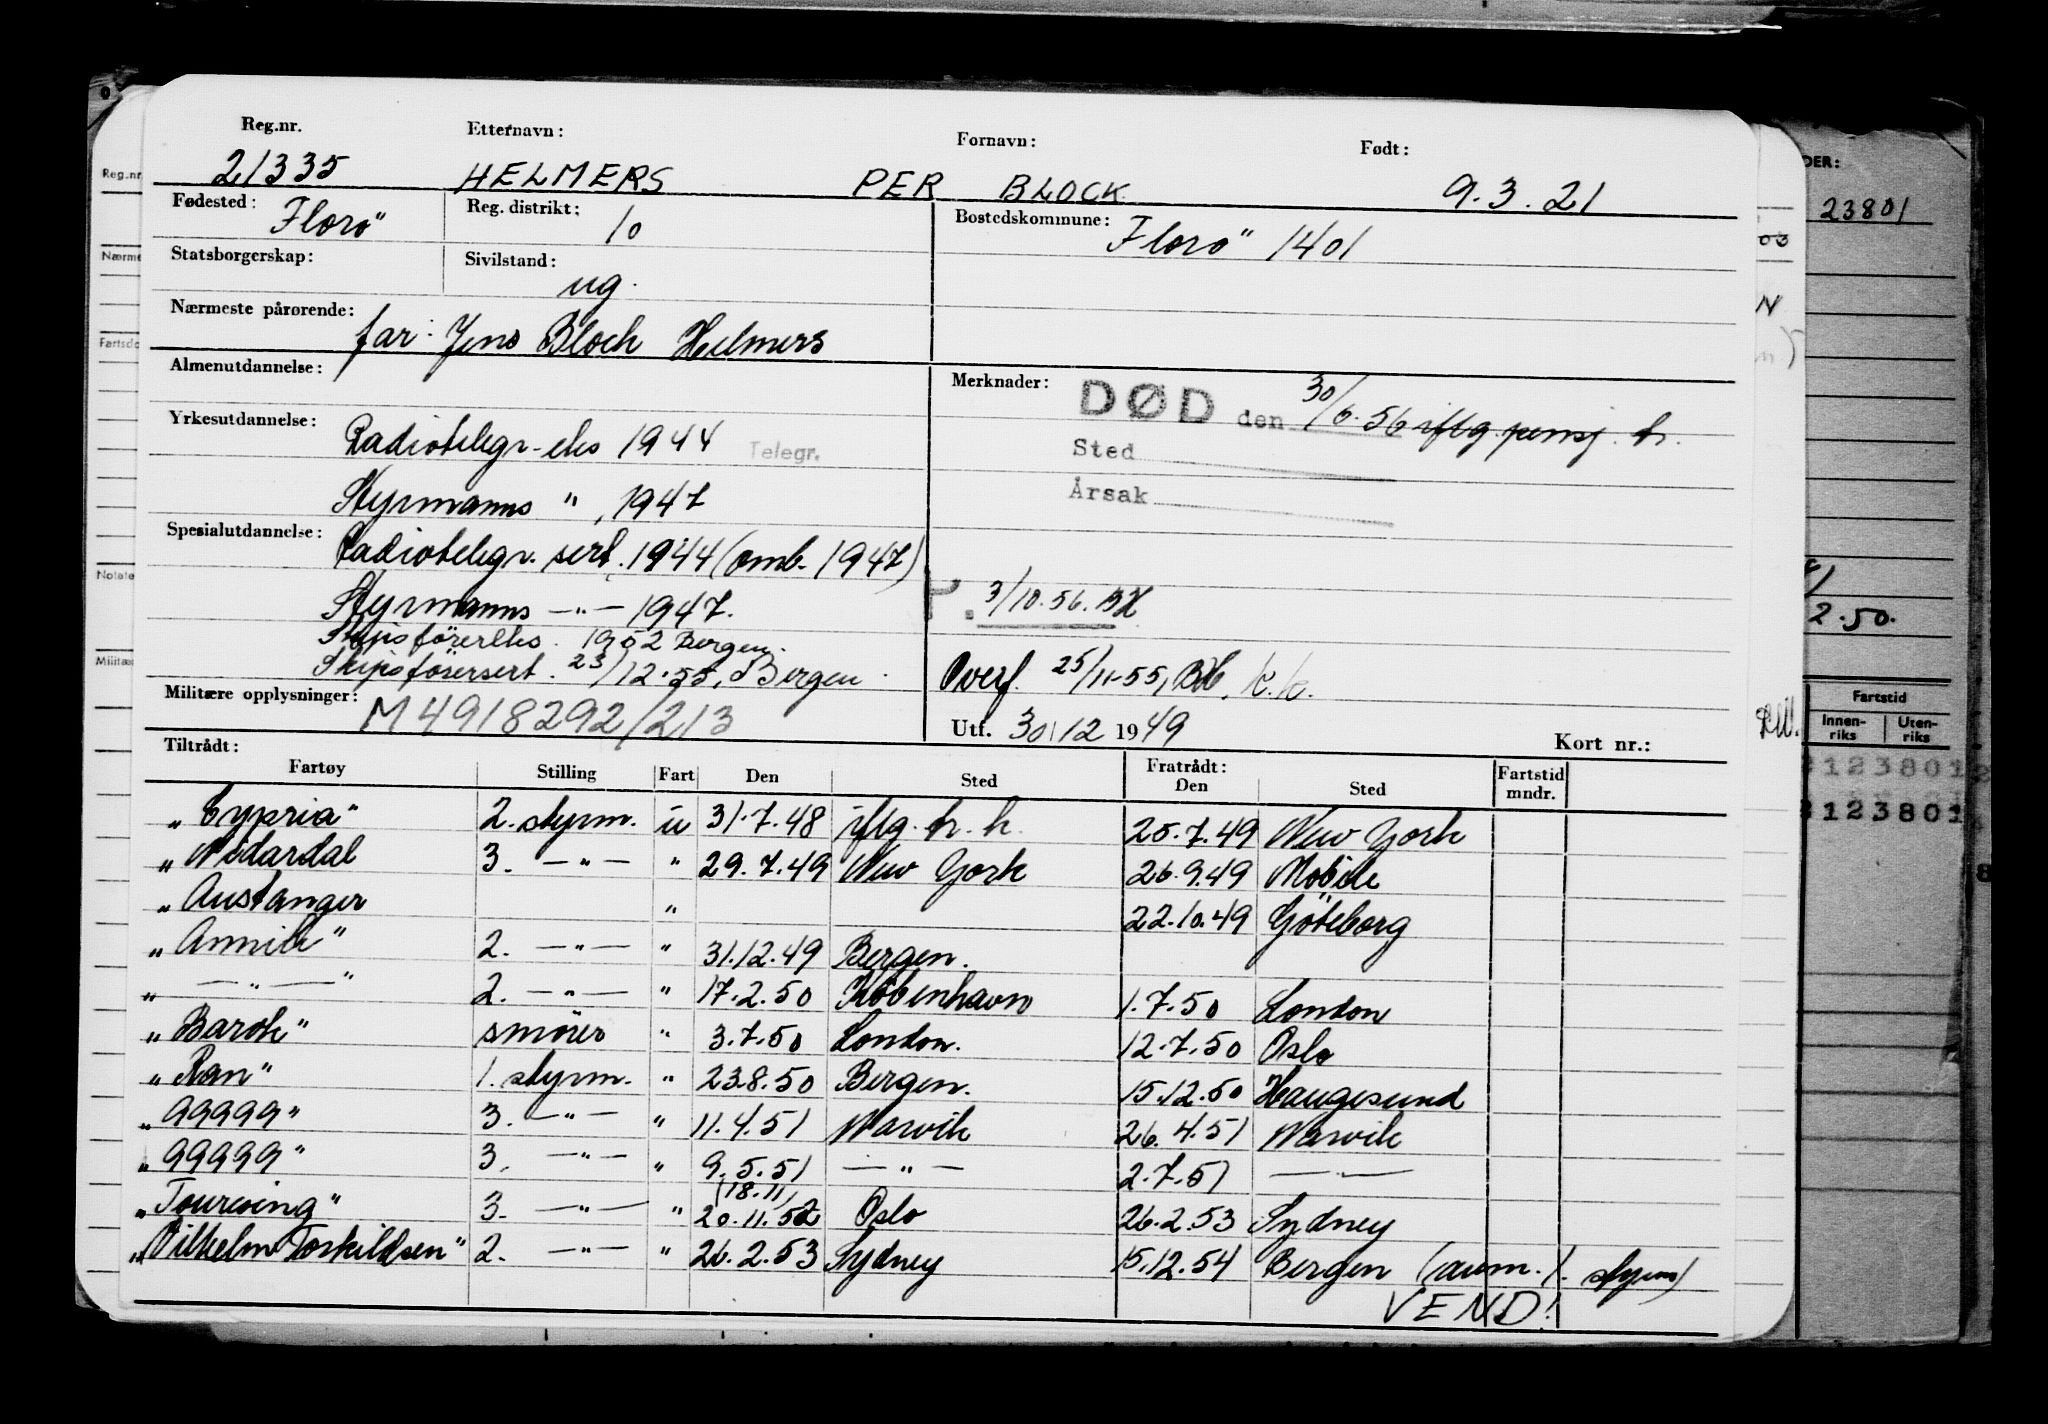 Reg.nr. Etternavn: Fornavn: Født:
21335 HELMERS PER BLOCK 9.3.21
Fødested: Florö Reg. distrikt: 10 Bostedskommune: Florö 1401
Statsborgerskap: Sivilstand: ug.
Nærmeste pårørende: far: Jens Bloch Helmers
Almenutdannelse: Merknader: DØD den 30/6.56 iflg pensj. tr.
Yrkesutdannelse: Radiotelegr-eks 1944 Telegr.
Sted
Styrmanns " , 1947
Årsak
Spesialutdannelse: Radiotelegr. sert. 1944 (omb. 1947)
Styrmanns —"— 1947.
3/10.56. BH
Skipsförereks. 1952 Bergen.
Skipsförersert. 23/12.55, Bergen.
Overf. 25/11-55, BH, k.k.
Militære opplysninger: M4918292/213
Utf. 30/12 1949 Kort nr.:
Tiltrådt: Fratrådt:
Fartøy Stilling Fart Den Sted Den Sted Fartstid mndr.
"Cypria" 2. styrm. u 31.7.48 iflg. h. k. 25.7.49 New York
"Nidardal 3. —"— " 29.7.49 New York 26.9.49 Mobile
"Austanger " 22.10.49 Göteborg
"Annik" 2. —"— " 31.12.49 Bergen.
" —"— " 2. —"— " 17.2.50 København 1.7.50 London
"Barok" smörer " 3.7.50 London. 12.7.50 Oslo
"Ran" 1. styrm. " 23.8.50 Bergen. 15.12.50 Haugesund
"99999" 3. —"— " 11.4.51 Narvik 26.4.51 Narvik
"99999" 3. —"— " 9.5.51 —"— 2.7.51 —"—
(18.11)
"Tourcoing" 3. —"— " 20.11.52 Oslo 26.2.53 Sydney
"Vilhelm Torkildsen" 2. —"— " 26.2.53 Sydney 15.12.54 Bergen (avm. 1. styrm)
VEND!
Reg.nr
Nærme
Fartsdo
Notate
Militær
DER:
23801
2.50.
Fartstid
Innen-riks Uten-riks
123801
123801